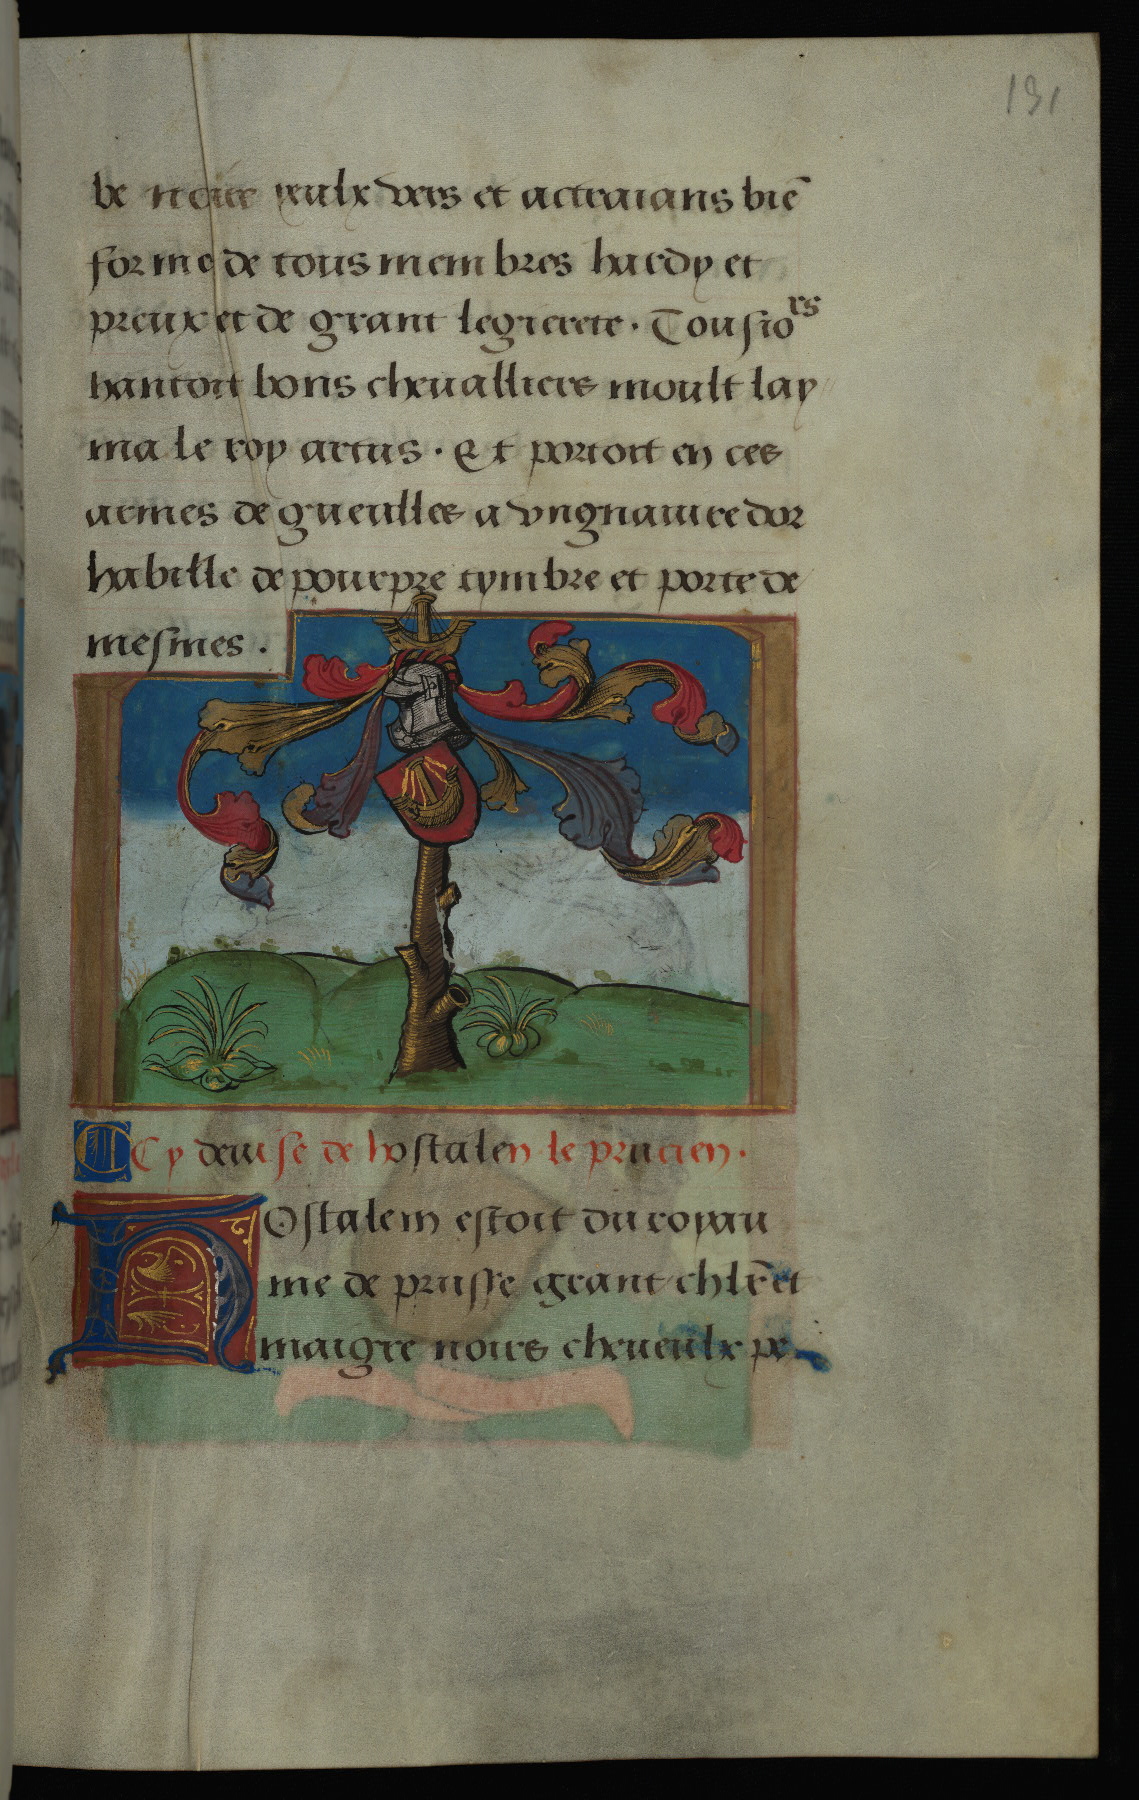 131
be noire yeulx vers et actraians biē
forme de tous membres hardy et
preux et de grant legierete. Tousiors
hantoit bons chevalliers moult lay
ma le roy artus. Et portoit en ces
armes de gueulles a ung navire dor
habille de pourpre tymbre et porte de
mesmes.
Cy devise de hostalen le prucien.
Hostalem estoit du royau
me de prusse grant chlr̄ et
maigre noirs cheveulx pe